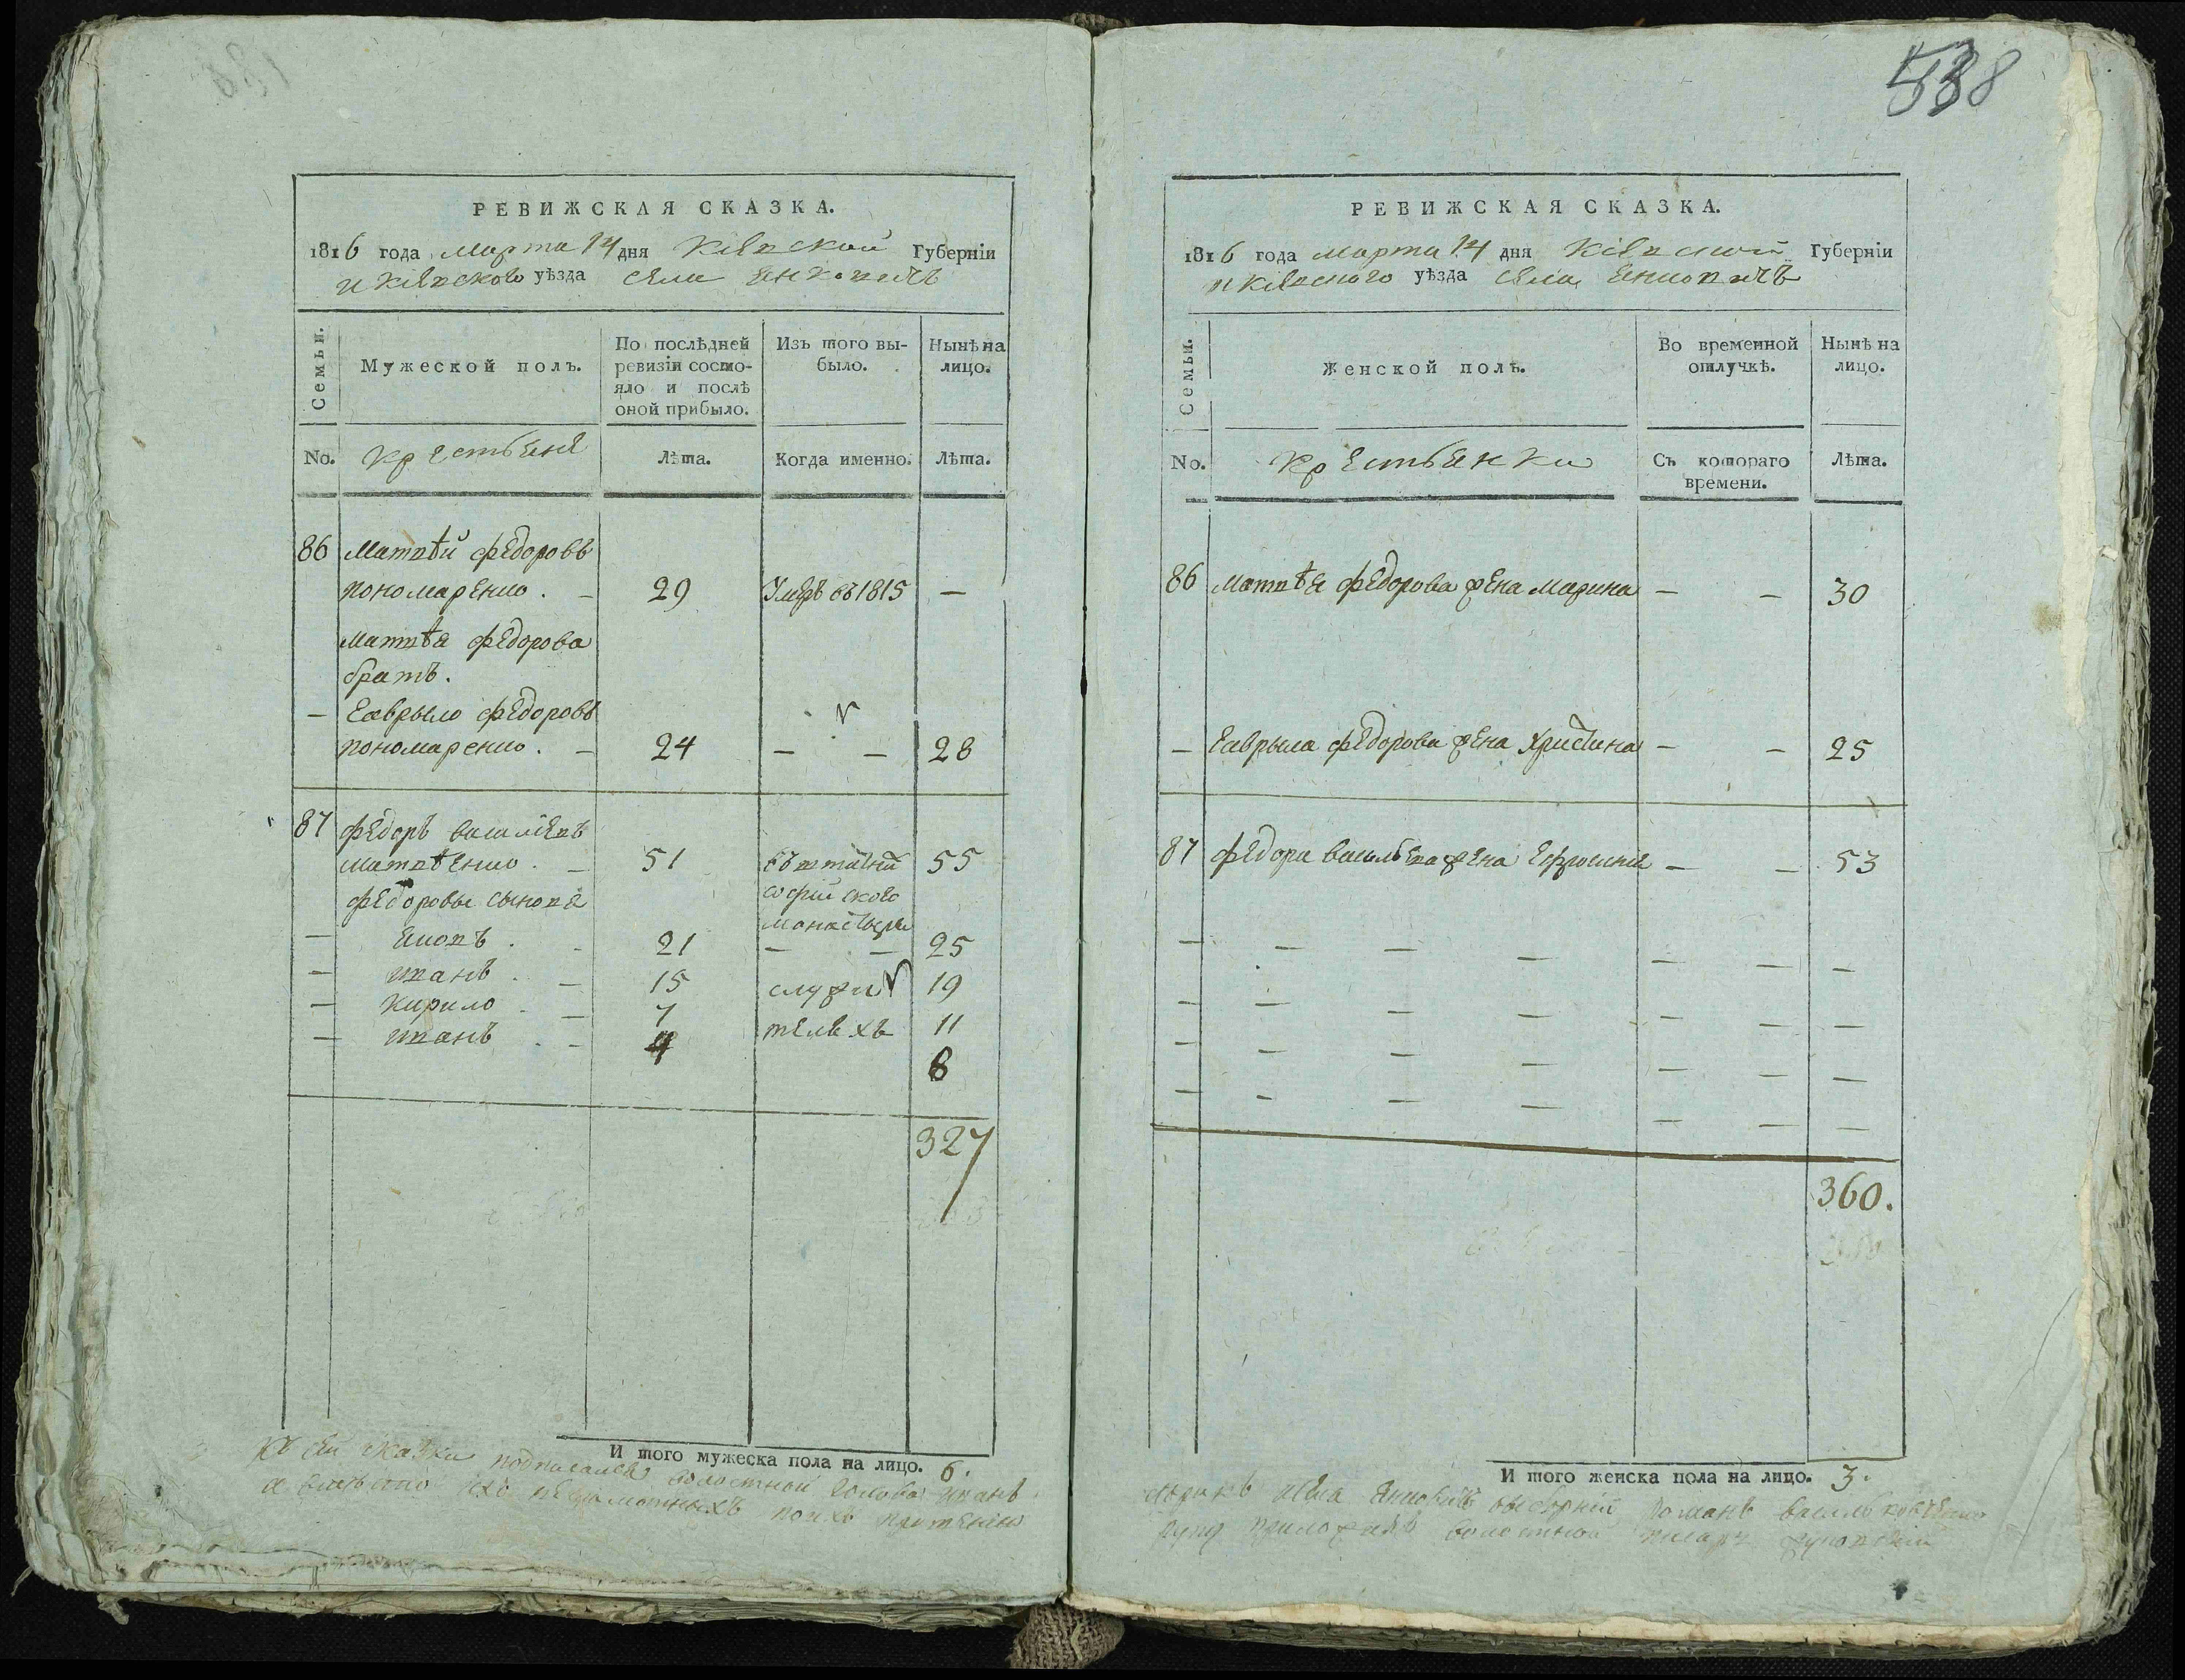 538
РЕВИЖСКАЯ СКАЗКА.
1816 года марта 14 дня Кіевской Губерніи
и Кіевского уѣзда села Янковичъ
Семьи.
Мужеской полъ.
По послѣдней
ревизіи состо-
яло и послѣ
оной прибыло.
Изъ того вы-
было.
Нынѣ на
лицо.
No. крестьяне
Лѣта.
Когда именно.
Лѣта.
86 Матвѣй Федоровъ
пономаренко. – 29 Умеръ въ 1815 –
Матвѣя Федорова
братъ.
– Гаврыло Федоровъ
пономаренко. – 24 – – 28
87 Федоръ василіевъ
матвѣенко. – 51 въ штатній 55
Федоровы сынове софийского
монастыря
– Яковъ . – 21 – – 25
– иванъ . – 15 служи 19
– кирило . – 7 телѣхъ 11
– иванъ . – 4 8
327
И того мужеска пола на лицо. 6.
Къ сей сказки подписался волостной голова иванъ
а вместо ихъ неграмотныхъ по ихъ прошению
РЕВИЖСКАЯ СКАЗКА.
1816 года марта 14 дня Кіевской Губерніи
и Кіевского уѣзда села Янковичъ
Семьи.
Женской полъ.
Во временной
отлучкѣ.
Нынѣ на
лицо.
No. крестьянки
Съ котораго
времени.
Лѣта.
86 Матвѣя Федорова жена Марина – – 30
– Гаврыла Федорова жена Христина – – 25
87 Федора васильева жена Ефросиния – – 53
360.
И того женска пола на лицо. 3.
села Янковичъ романъ
руку приложилъ волостной писарь